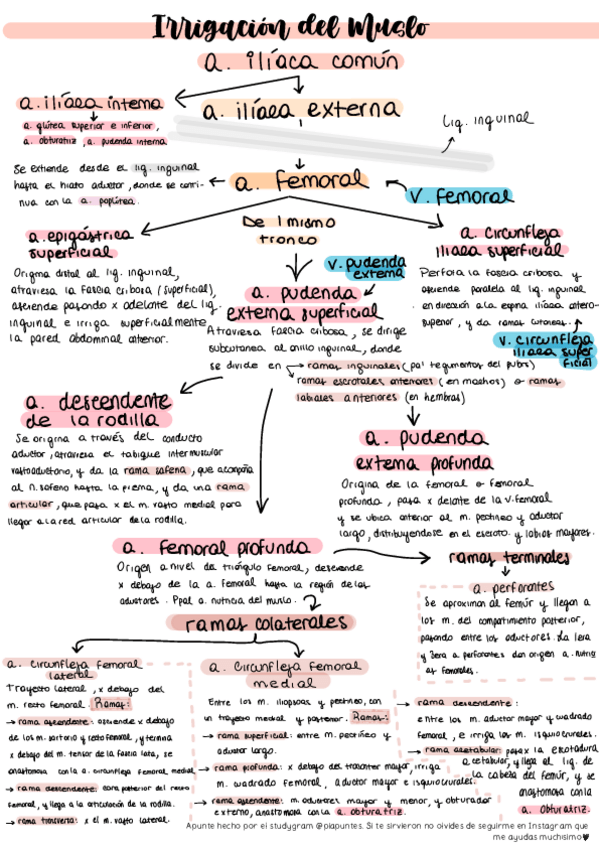 Irrigación del Muslo
a. ilíaca común
a. ilíaca interna
a. glútea superior e inferior,
a. obturatriz, a. pudenda interna
a. ilíaca externa
lig. inguinal
Se extiende desde el lig. inguinal
hasta el hiato aductor, donde se conti-
nua con la a. poplítea.
a. femoral
v. femoral
a. epigástrica
superficial
Origina distal al lig. inguinal,
atraviesa la fascia cribosa (superficial),
asciende pasando x adelante del lig.
inguinal e irriga superficialmente
la pared abdominal anterior.
De 1 mismo
tronco
v. pudenda
externa
a. pudenda
externa superficial
Atraviesa fascia cribosa, se dirige
subcutanea al anillo inguinal, donde
se divide en → ramas inguinales (pa' tegumentos del pubis)
ramas escrotales anteriores (en machos) o ramas
labiales anteriores (en hembras)
a. circunfleja
iliaca superficial
Perfora la fascia cribosa y
asciende paralela al lig. inguinal
en dirección a la espina ilíaca antero-
superior, y da ramas cutaneas.
v. circunfleja
iliaca super
ficial
a. descendente
de la rodilla
Se origina a través del conducto
aductor, atraviesa el tabique intermuscular
vastoaductorio, y da la rama safena, que acompaña
al n. safeno hasta la pierna, y da una rama
articular, que pasa x el m. vasto medial para
llegar a la red articular de la rodilla.
a. pudenda
externa profunda
Origina de la femoral o femoral
profunda, pasa x delante de la v. femoral
y se ubica anterior al m. pectineo y aductor
largo, distribuyendose en el escroto y labios mayores.
a. femoral profunda
Origen a nivel de triángulo femoral, desciende
x debajo de la a. femoral hasta la región de los
aductores. Ppal a. nutricia del muslo.
ramas terminales
a. perforantes
Se aproximan al femúr y llegan a
los m. del compartimiento posterior,
pasando entre los aductores. La 1era
y 3era a perforantes dan origen a. nutricias
femorales.
ramas colaterales
a. circunfleja femoral
lateral
Trayecto lateral, x debajo del
m. recto femoral. Ramas:
→ rama ascendente: asciende x debajo
de los m. sartorio y recto femoral, y termina
x debajo del m. tensor de la fascia lata, se
anastomosa con la a. circunfleja femoral medial
→ rama descendente: cara posterior del recto
femoral, y llega a la articulación de la rodilla.
→ rama transversa: x el m. vasto lateral.
a. circunfleja femoral
medial
Entre los m. iliopsoas y pectineo, con
un trayecto medial y posterior. Ramas:
→ rama superficial: entre m. pectineo y
aductor largo.
→ rama profunda: x debajo del trocanter mayor, irriga
m. cuadrado femoral, aductor mayor e isquiocrurales.
→ rama ascendente: m. aductores mayor y menor, y obturador
externo, anastomosa con la a. obturatriz.
→ rama descendente:
entre los m. aductor mayor y cuadrado
femoral, e irriga los m. isquiocrurales.
→ rama acetabular: pasa x la escotadura
acetabular, y llega al lig. de
la cabeza del femúr, y se
anastomosa con la
a. obturatriz.
Apunte hecho por el studygram @piapuntes. Si te sirvieron no olvides de seguirme en Instagram que
me ayudas muchisimo♥